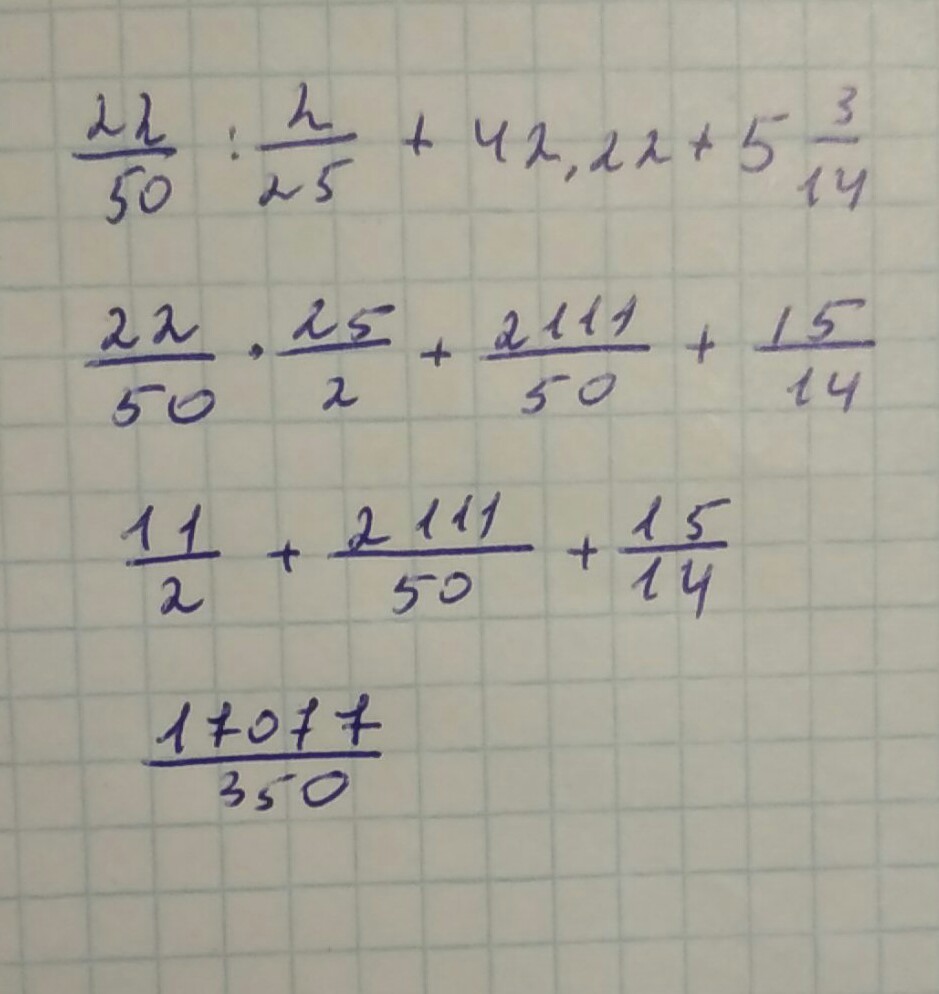 22/50 : 2/25 + 42,22 + 5 3/14
22/50 · 25/2 + 2111/50 + 15/14
11/2 + 2111/50 + 15/14
17077/350